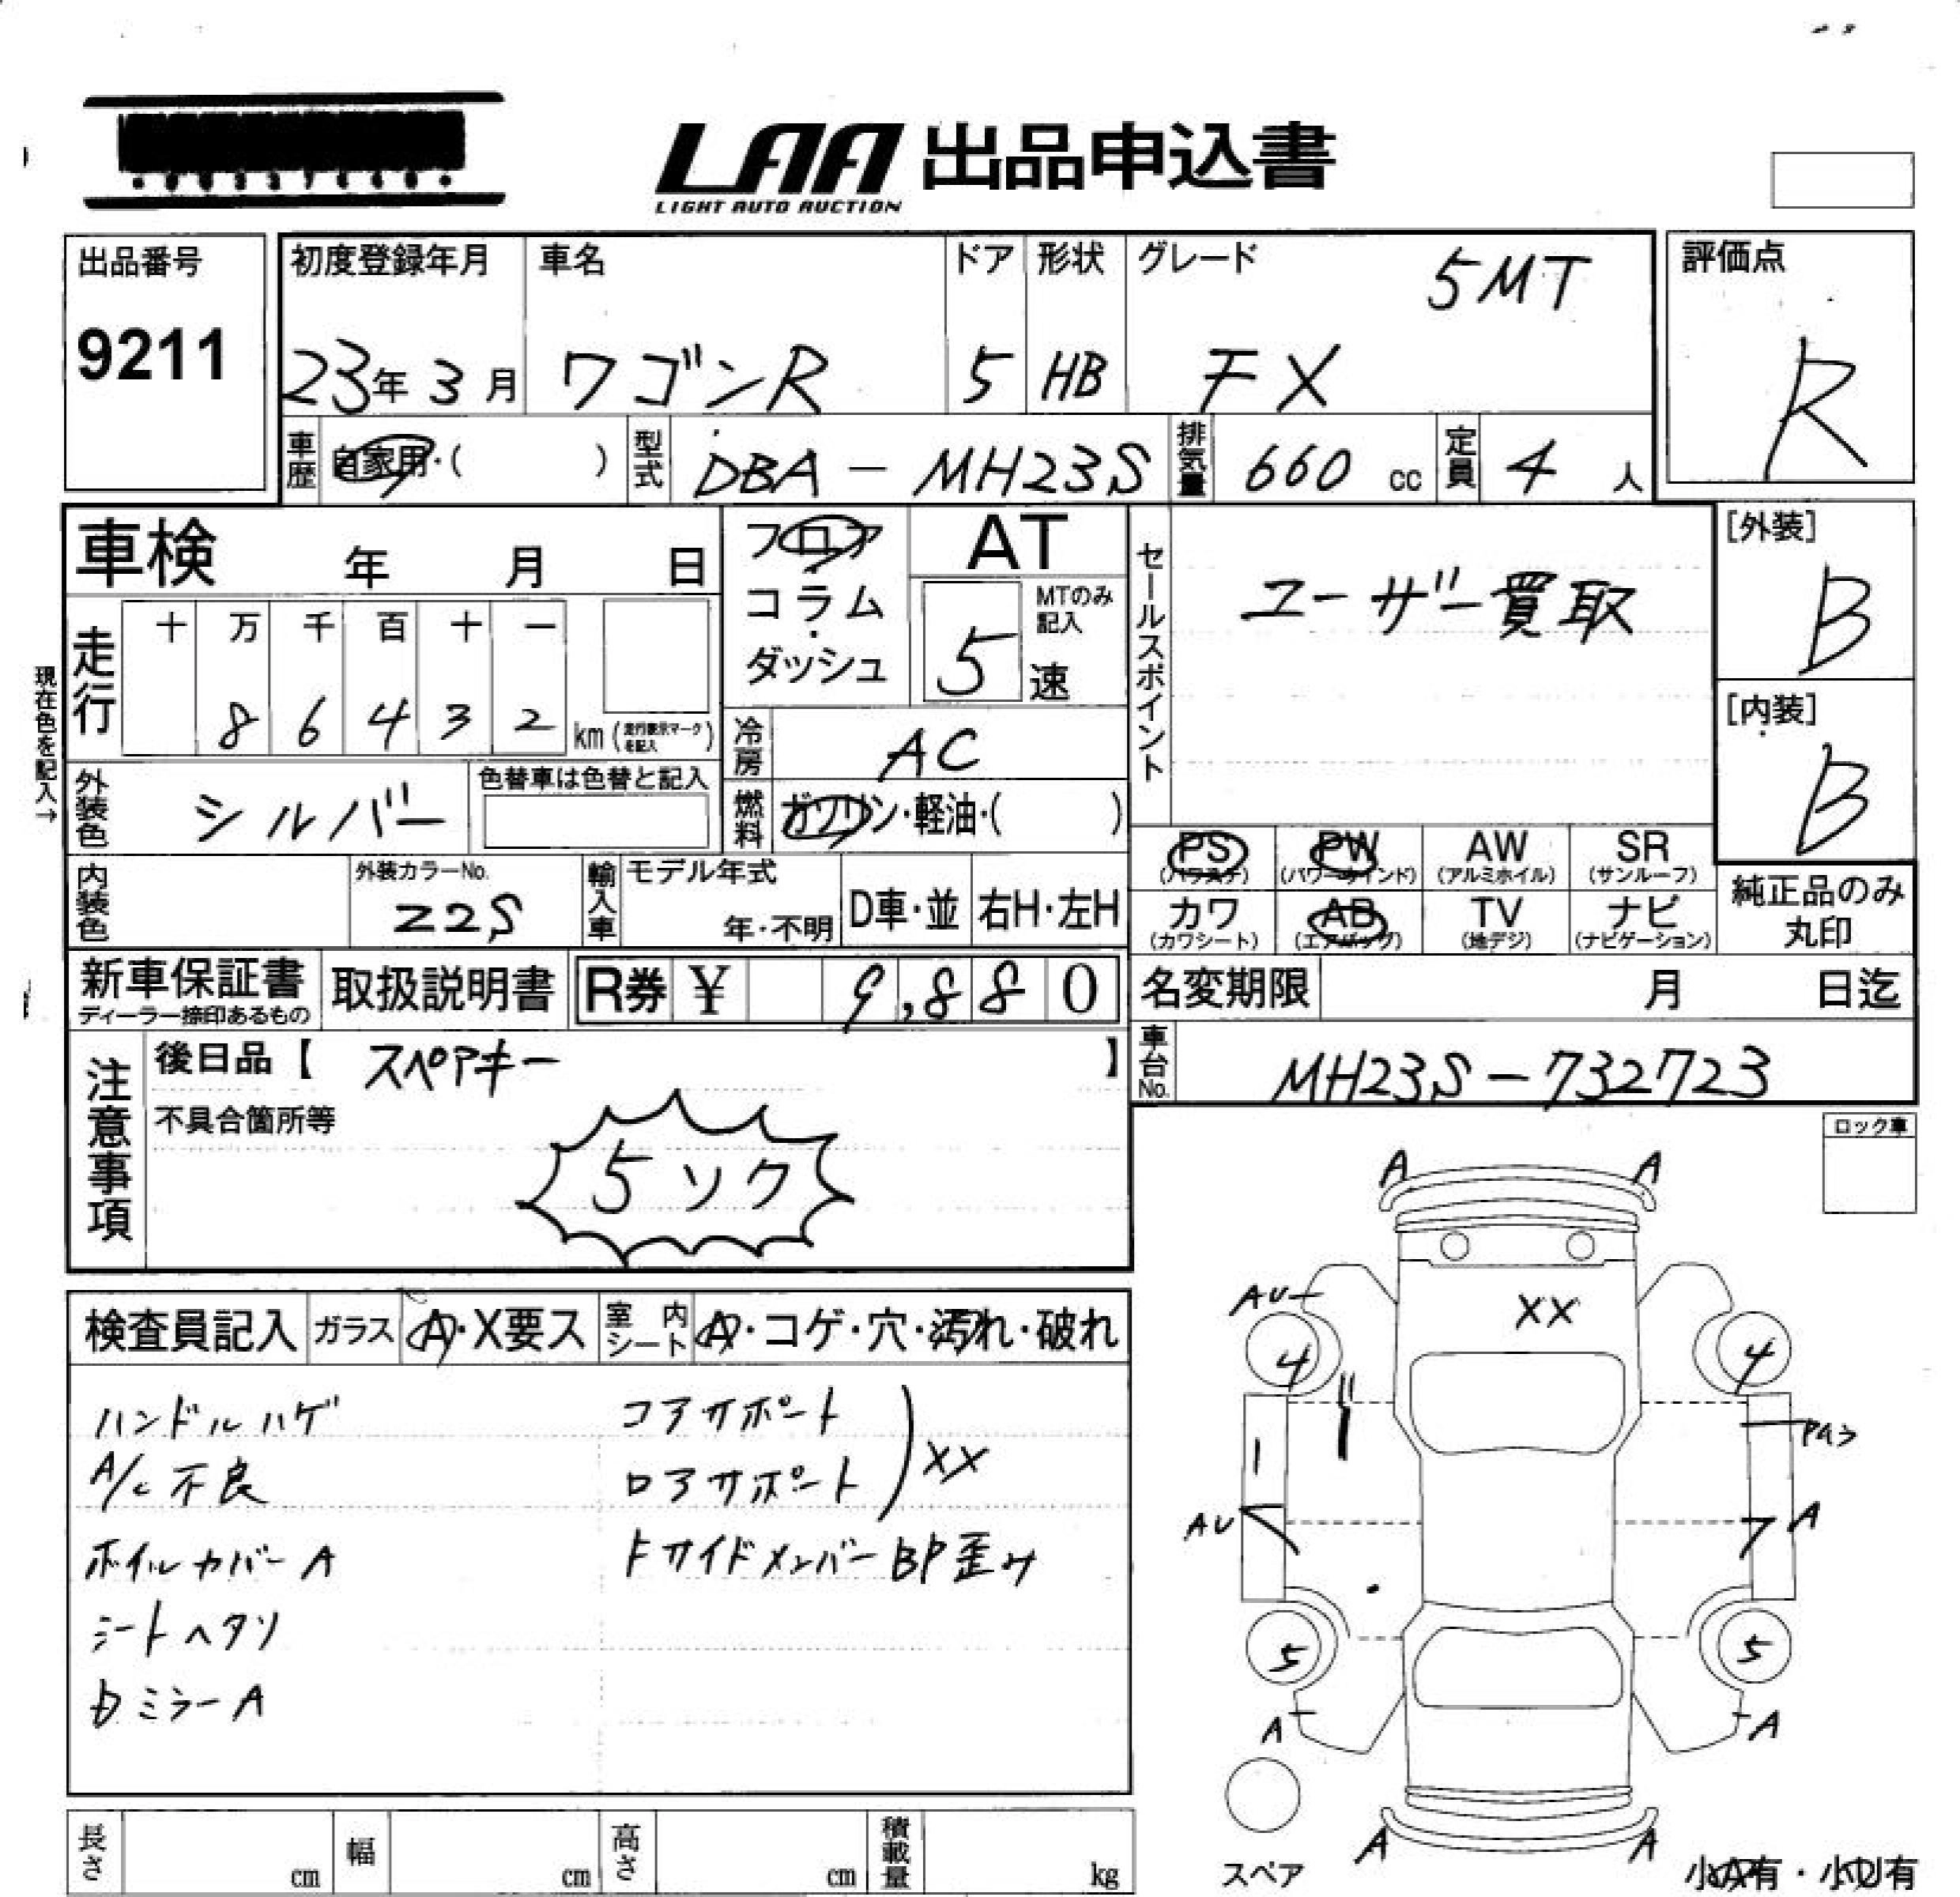 LAA 出品申込書
LIGHT AUTO AUCTION
出品番号
9211
初度登録年月
23年 3月
車名
ワゴンR
ドア
5
形状
HB
グレード
5MT
FX
評価点
R
車歴
自家用・( )
型式
DBA-MH23S
排気量
660 cc
定員
4 人
車検 年 月 日
フロア・
コラム・
ダッシュ
AT
MTのみ
記入
5 速
セールスポイント
ユーザー買取
[外装]
B
[内装]
B
現在色を記入→
走行
十 万 千 百 十 一
8 6 4 3 2
km (走行表示マークを記入)
冷房
AC
外装色
シルバー
色替車は色替と記入
燃料
ガソリン・軽油・( )
PS
(パワステ)
PW
(パワーウインド)
AW
(アルミホイル)
SR
(サンルーフ)
カワ
(カワシート)
AB
(エアバッグ)
TV
(地デジ)
ナビ
(ナビゲーション)
純正品のみ
丸印
内装色
外装カラーNo.
Z2S
輸入車
モデル年式
年・不明
D車・並
右H・左H
新車保証書
ディーラー捺印あるもの
取扱説明書
R券 ¥ 9,880
名変期限 月 日迄
車台No.
MH23S-732723
注意事項
後日品【 スペアキー 】
不具合箇所等
5ソク
ロック車
検査員記入
ガラス
A・X要ス
室内
シート
A・コゲ・穴・汚れ・破れ
ハンドルハゲ
A/C不良
ホイルカバーA
シートヘタリ
ミラーA
コアサポート
ロアサポート
XX
サイドメンバーBP歪み
A A
AU
XX
4 4
AU
A
5 5
A A
A A
スペア
小A有・小U有
長さ cm
幅 cm
高さ cm
積載量 kg